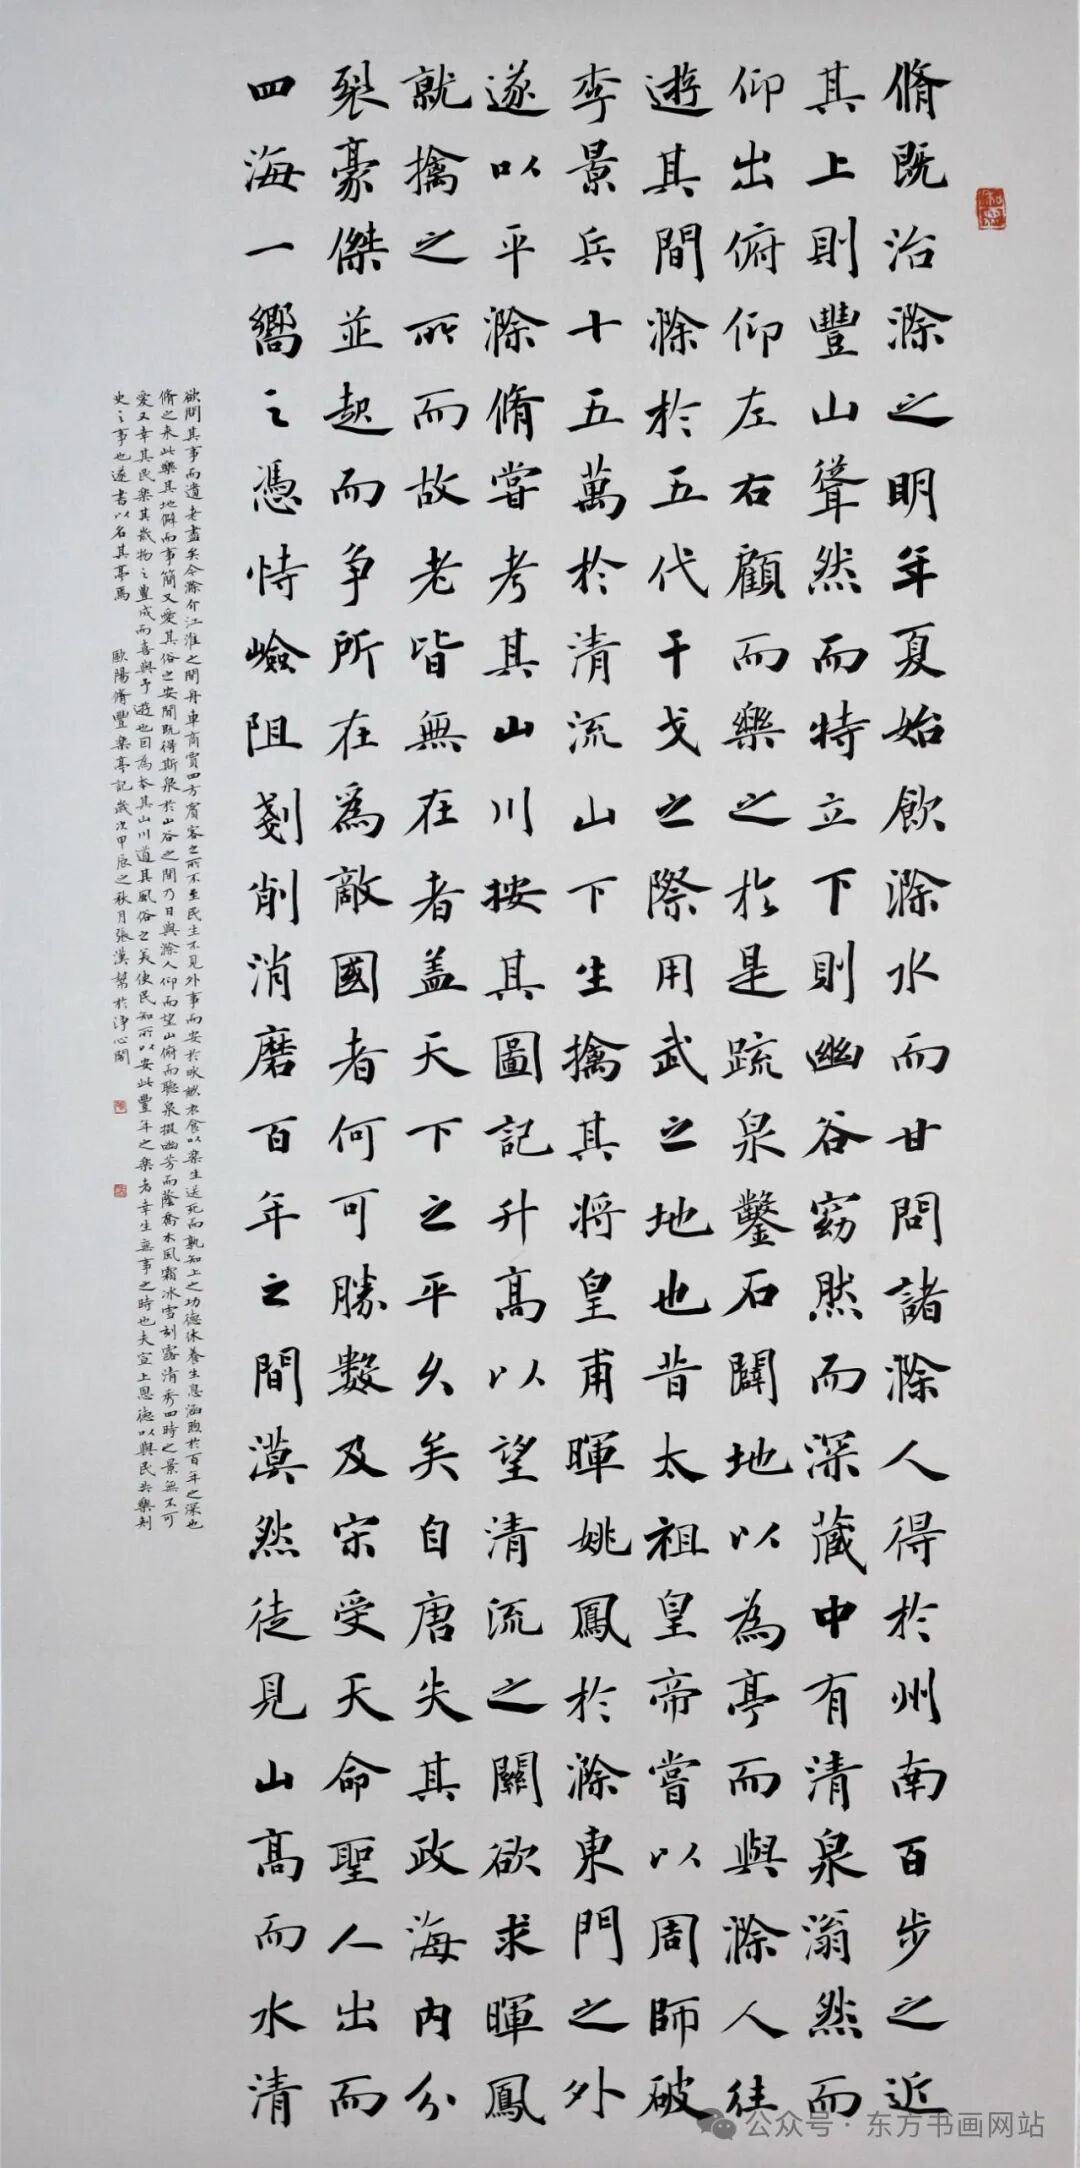 脩既治滁之明年夏始飲滁水而甘問諸滁人得於州南百步之近
其上則豐山聳然而特立下則幽谷窈然而深藏中有清泉滃然而
仰出俯仰左右顧而樂之於是疏泉鑿石闢地以為亭而與滁人往
遊其間滁於五代干戈之際用武之地也昔太祖皇帝嘗以周師破
李景兵十五萬於清流山下生擒其將皇甫暉姚鳳於滁東門之外
遂以平滁脩嘗考其山川按其圖記升高以望清流之關欲求暉鳳
就擒之所而故老皆無在者盖天下之平久矣自唐失其政海內分
裂豪傑並起而爭所在為敵國者何可勝數及宋受天命聖人出而
四海一嚮之憑恃嶮阻剗削消磨百年之間漠然徒見山高而水清
欲問其事而遺老盡矣今滁介江淮之間舟車商賈四方賓客之所不至民生不見外事而安於畎畝衣食以樂生送死而孰知上之功德休養生息涵煦於百年之深也
脩之來此樂其地僻而事簡又愛其俗之安閒既得斯泉於山谷之間乃日與滁人仰而望山俯而聽泉掇幽芳而蔭喬木風霜冰雪刻露清秀四時之景無不可
愛又幸其民樂其歲物之豐成而喜與予遊也因為本其山川道其風俗之美使民知所以安此豐年之樂者幸生無事之時也夫宣上恩德以與民共樂刺
史之事也遂書以名其亭焉 歐陽脩豐樂亭記歲次甲辰之秋月張漢幫於淨心閣
公众号·东方书画网站